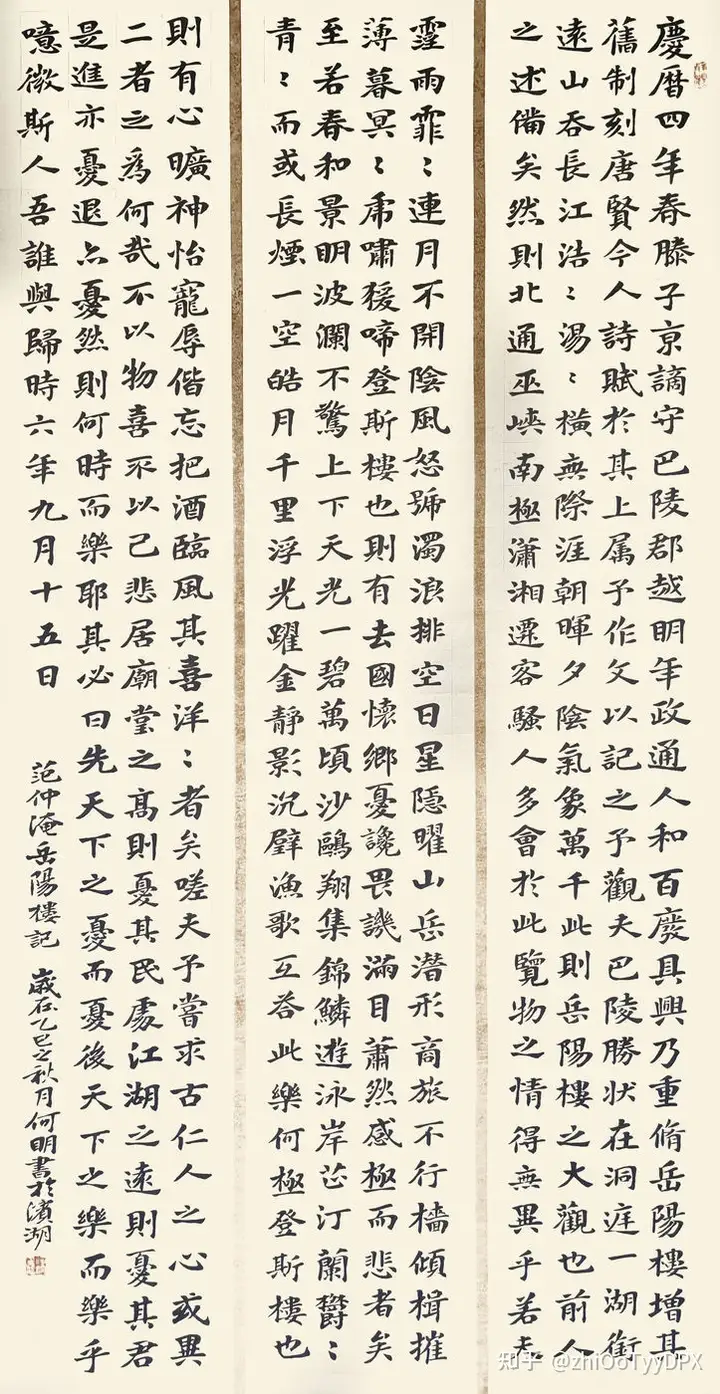 慶曆四年春滕子京謫守巴陵郡越明年政通人和百廢具興乃重脩岳陽樓增其
舊制刻唐賢今人詩賦於其上属予作文以記之予觀夫巴陵勝狀在洞庭一湖銜
遠山吞長江浩〻湯〻橫無際涯朝暉夕陰氣象萬千此則岳陽樓之大觀也前人
之述備矣然則北通巫峽南極瀟湘遷客騷人多會於此覽物之情得無異乎若夫
霪雨霏〻連月不開陰風怒號濁浪排空日星隱曜山岳潛形商旅不行檣傾楫摧
薄暮冥〻虎嘯猨啼登斯樓也則有去國懷鄉憂讒畏譏滿目蕭然感極而悲者矣
至若春和景明波瀾不驚上下天光一碧萬頃沙鷗翔集錦鱗遊泳岸芷汀蘭欝〻
青〻而或長煙一空皓月千里浮光躍金靜影沉璧漁歌互答此樂何極登斯樓也
則有心曠神怡寵辱偕忘把酒臨風其喜洋〻者矣嗟夫予嘗求古仁人之心或異
二者之為何哉不以物喜不以己悲居廟堂之高則憂其民處江湖之遠則憂其君
是進亦憂退亦憂然則何時而樂耶其必曰先天下之憂而憂後天下之樂而樂乎
噫微斯人吾誰與歸時六年九月十五日
范仲淹岳陽樓記 歲在乙巳之秋月何明書於濱湖
知乎 @zhiOoTyyDPX